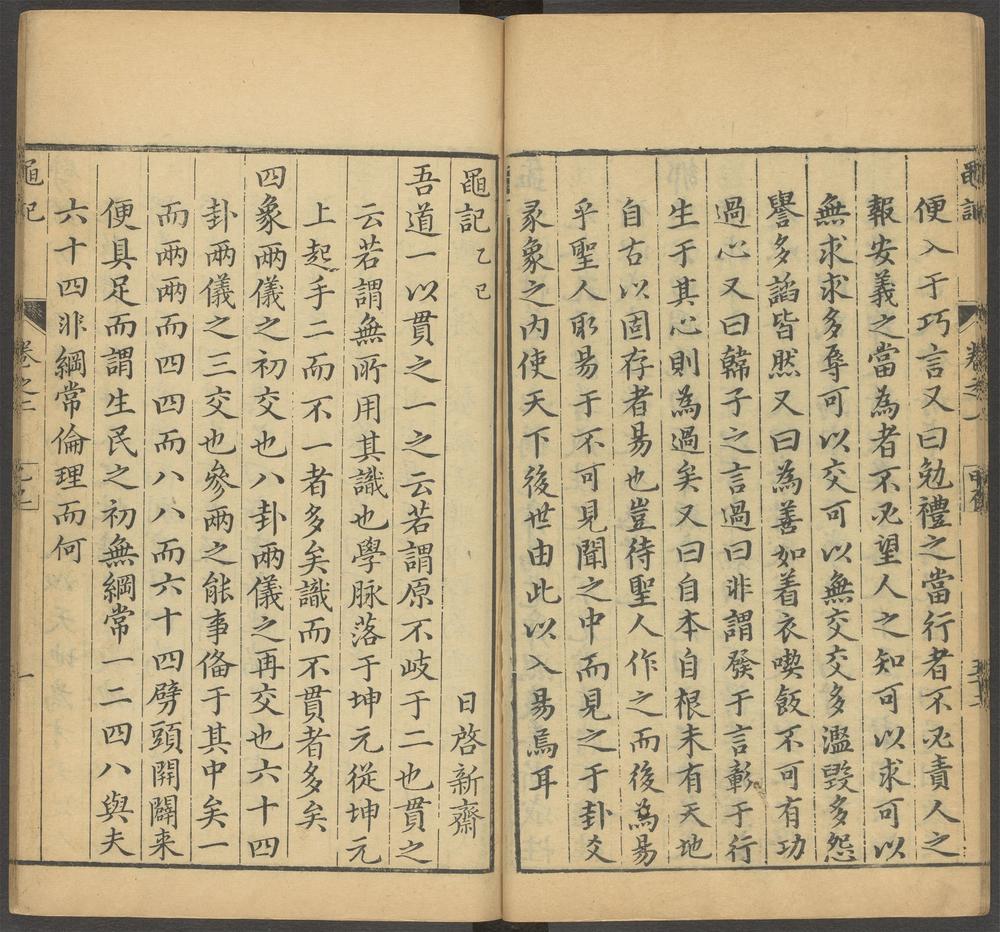 便入于巧言又曰勉禮之當行者不必責人之
報安義之當為者不必望人之知可以求可以
無求求多辱可以交可以無交交多濫毀多怨
譽多謟皆然又曰為善如着衣喫飯不可有功
過心又曰韓子之言過曰非謂發于言彰于行
生于其心則為過矣又曰自本自根未有天地
自古以固存者易也豈待聖人作之而後為易
乎聖人取易于不可見聞之中而見之于卦爻
彖象之内使天下後世由此以入易焉耳
黽記 乙巳 日啓新齋
吾道一以貫之一之云若謂原不岐于二也貫之
云若謂無所用其識也學脉落于坤元從坤元
上起手二而不一者多矣識而不貫者多矣
四象兩儀之初交也八卦兩儀之再交也六十四
卦兩儀之三交也參兩之能事俻于其中矣一
而兩兩而四四而八八而六十四劈頭開闢来
便具足而謂生民之初無綱常一二四八與夫
六十四非綱常倫理而何
黽記 卷之二 一